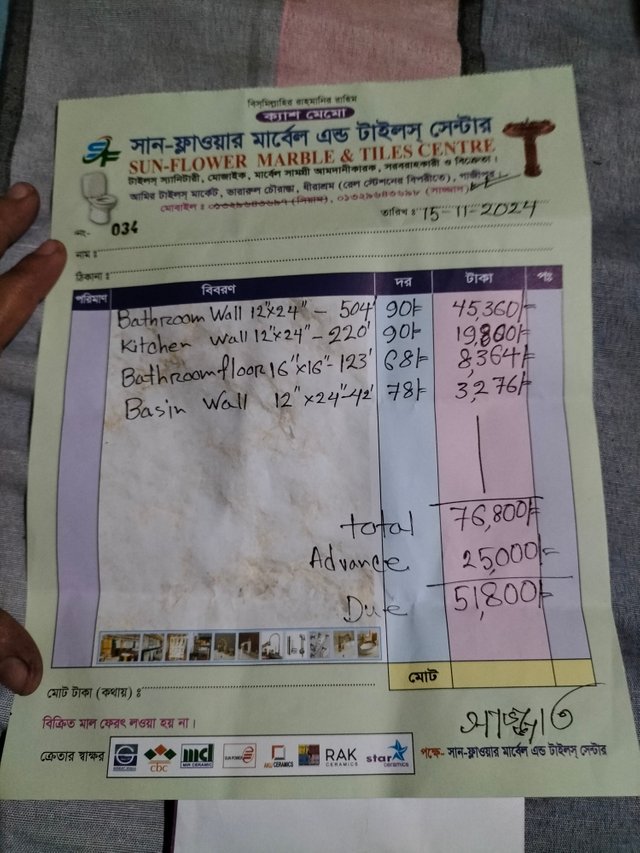 বিসমিল্লাহির রাহমানির রাহিম
ক্যাশ মেমো
সান-ফ্লাওয়ার মার্বেল এন্ড টাইলস্ সেন্টার
SUN-FLOWER MARBLE & TILES CENTRE
টাইলস্ স্যানিটারী, মোজাইক, মার্বেল সামগ্রী আমদানীকারক, সরবরাহকারী ও বিক্রেতা।
আমির টাইলস্ মার্কেট, ভারারুল চৌরাস্তা, ধীরাশ্রম (রেল স্টেশনের বিপরীতে), গাজীপুর।
মোবাইল :
নং- 034
তারিখ : 15-11-2024
নাম :
ঠিকানা :
পরিমাণ বিবরণ দর টাকা পঃ
Bathroom Wall 12"x24" - 504' 90/= 45,360/=
Kitchen Wall 12"x24" - 220' 90/= 19,800/=
Bathroom floor 16"x16" - 123' 68/= 8,364/=
Basin Wall 12"x24" - 42' 78/= 3,276/=
total 76,800/=
Advance 25,000/=
Due 51,800/=
মোট
মোট টাকা (কথায়) :
বিক্রিত মাল ফেরৎ লওয়া হয় না।
ক্রেতার স্বাক্ষর
cbc
mcl
MIR CERAMIC
SUN POWER
AKIJ CERAMICS
RAK CERAMICS
star CERAMICS
পক্ষে- সান-ফ্লাওয়ার মার্বেল এন্ড টাইলস্ সেন্টার